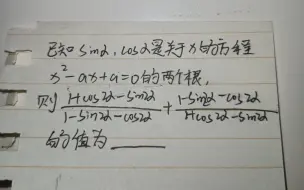 已知 sinα, cosα是关于x的方程
x²-ax+a=0的两个根,
则 (1+cos2α-sin2α)/(1-sin2α-cos2α) + (1-sin2α-cos2α)/(1+cos2α-sin2α)
的值为____